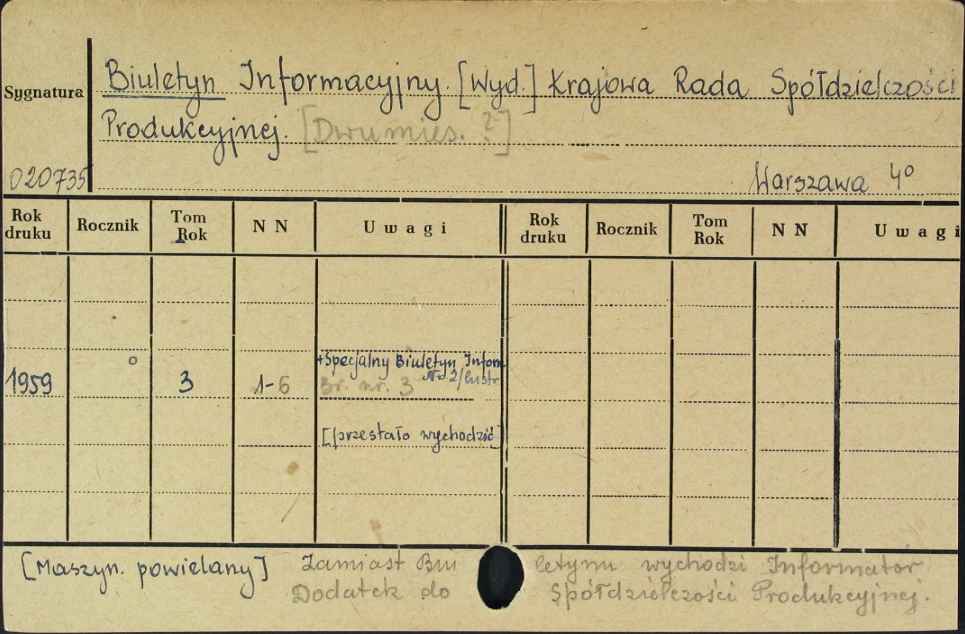 Sygnatura
Biuletyn Informacyjny. [Wyd.] Krajowa Rada Spółdzielczości
Produkcyjnej. [Dwumies. ?]
020735
Warszawa 4º
Rok druku Rocznik Tom Rok N N Uwagi Rok druku Rocznik Tom Rok N N Uwagi
+Specjalny Biuletyn Inform
1959 3 1-6 Br. nr. 3 Nr 2/
[przestało wychodzić]
[Maszyn. powielany] Zamiast Biuletynu wychodzi Informator
Dodatek do Spółdzielczości Produkcyjnej.